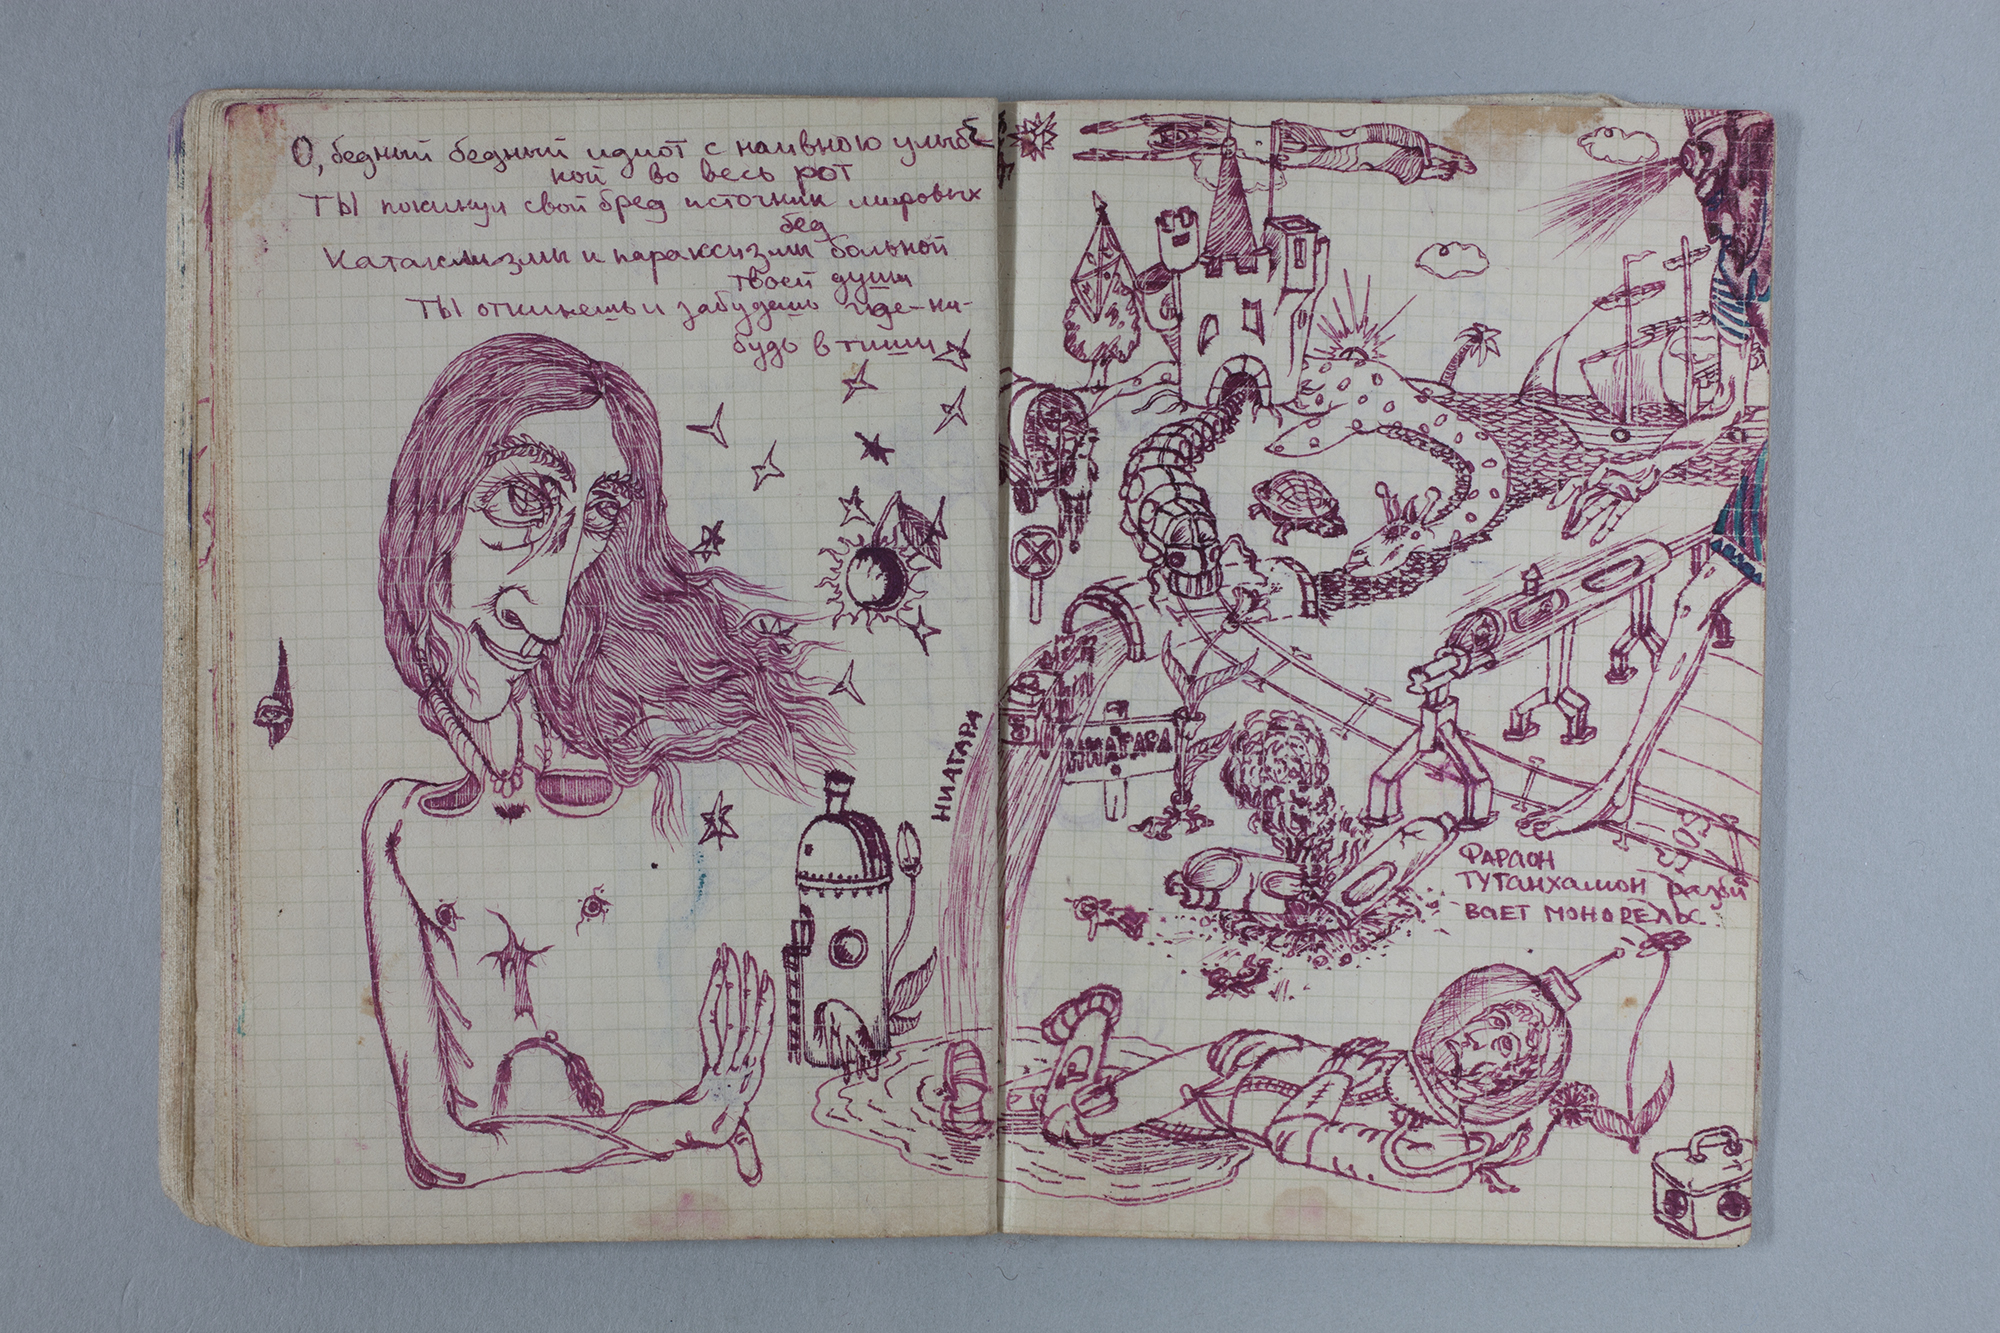 О, бедный бедный идиот с наивною улыб
кой во весь рот
Ты покинул свой бред источник мировых
бед
Катаклизмы и параксизмы больной
твоей души
Ты откинешь и забудешь где-ни-
будь в тиши
НИАГАРА
НИАГАРА
ФАРАОН
ТУТАНХАМОН разби
ВАЕТ МОНОРЕЛЬС